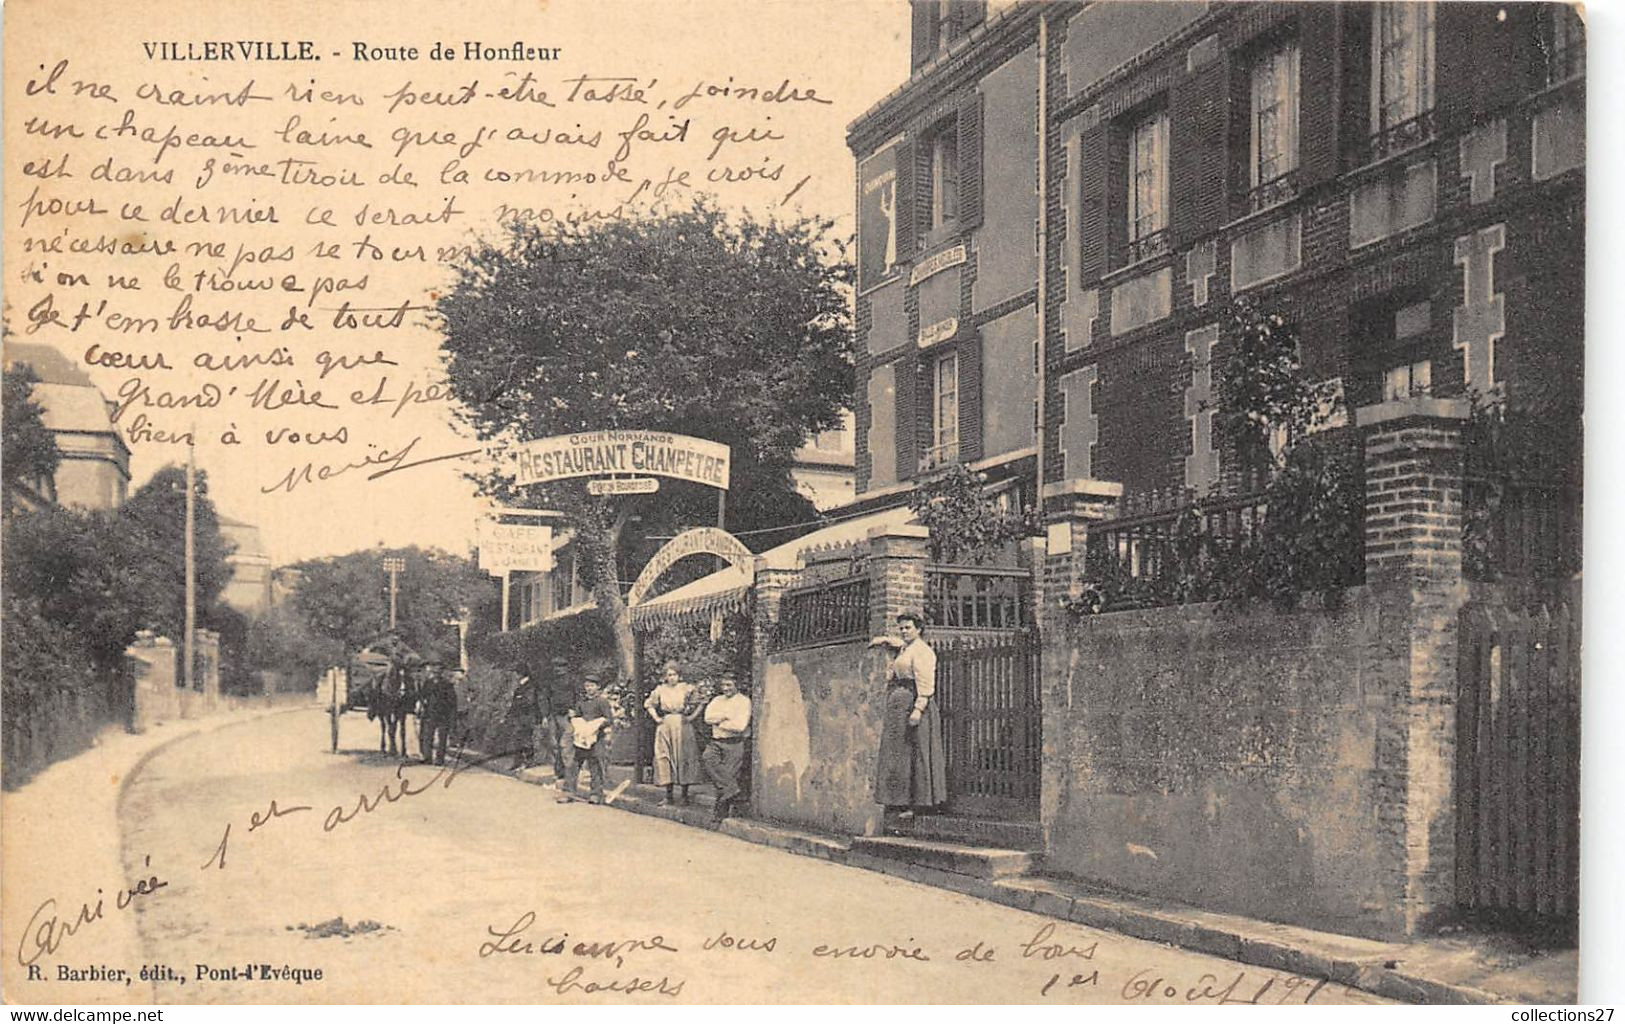 VILLERVILLE. - Route de Honfleur
il ne craint rien peut-être tassé, joindre
un chapeau laine que j'avais fait qui
est dans 3ème tiroir de la commode, je crois,
pour ce dernier ce serait moins
nécessaire ne pas se tourmenter
si on ne le trouve pas
Je t'embrasse de tout
cœur ainsi que
Grand'Mère et père
bien à vous
COUR NORMANDE
RESTAURANT CHAMPÊTRE
CAFÉ
RESTAURANT
RESTAURANT CHAMPÊTRE
CHAMBRES MEUBLÉES
Arrivée 1er arrêt
Lucienne vous envoie de bons
baisers
1er Août 191
R. Barbier, édit., Pont-l'Evêque
collections27